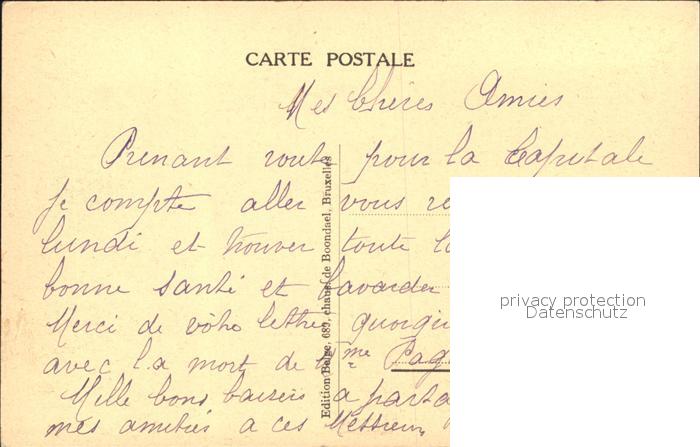 CARTE POSTALE
Mes Chères Amies
Prenant route pour la Capitale
Je compte aller vous
lundi et trouver toute
bonne santé et bavarder
Merci de vôtre lettre
avec la mort de Mme
Mille bons baisers a
mes amitiés a ces Messieurs
Edition Belge, 689, chauss. de Boondael, Bruxelles
privacy protection
Datenschutz